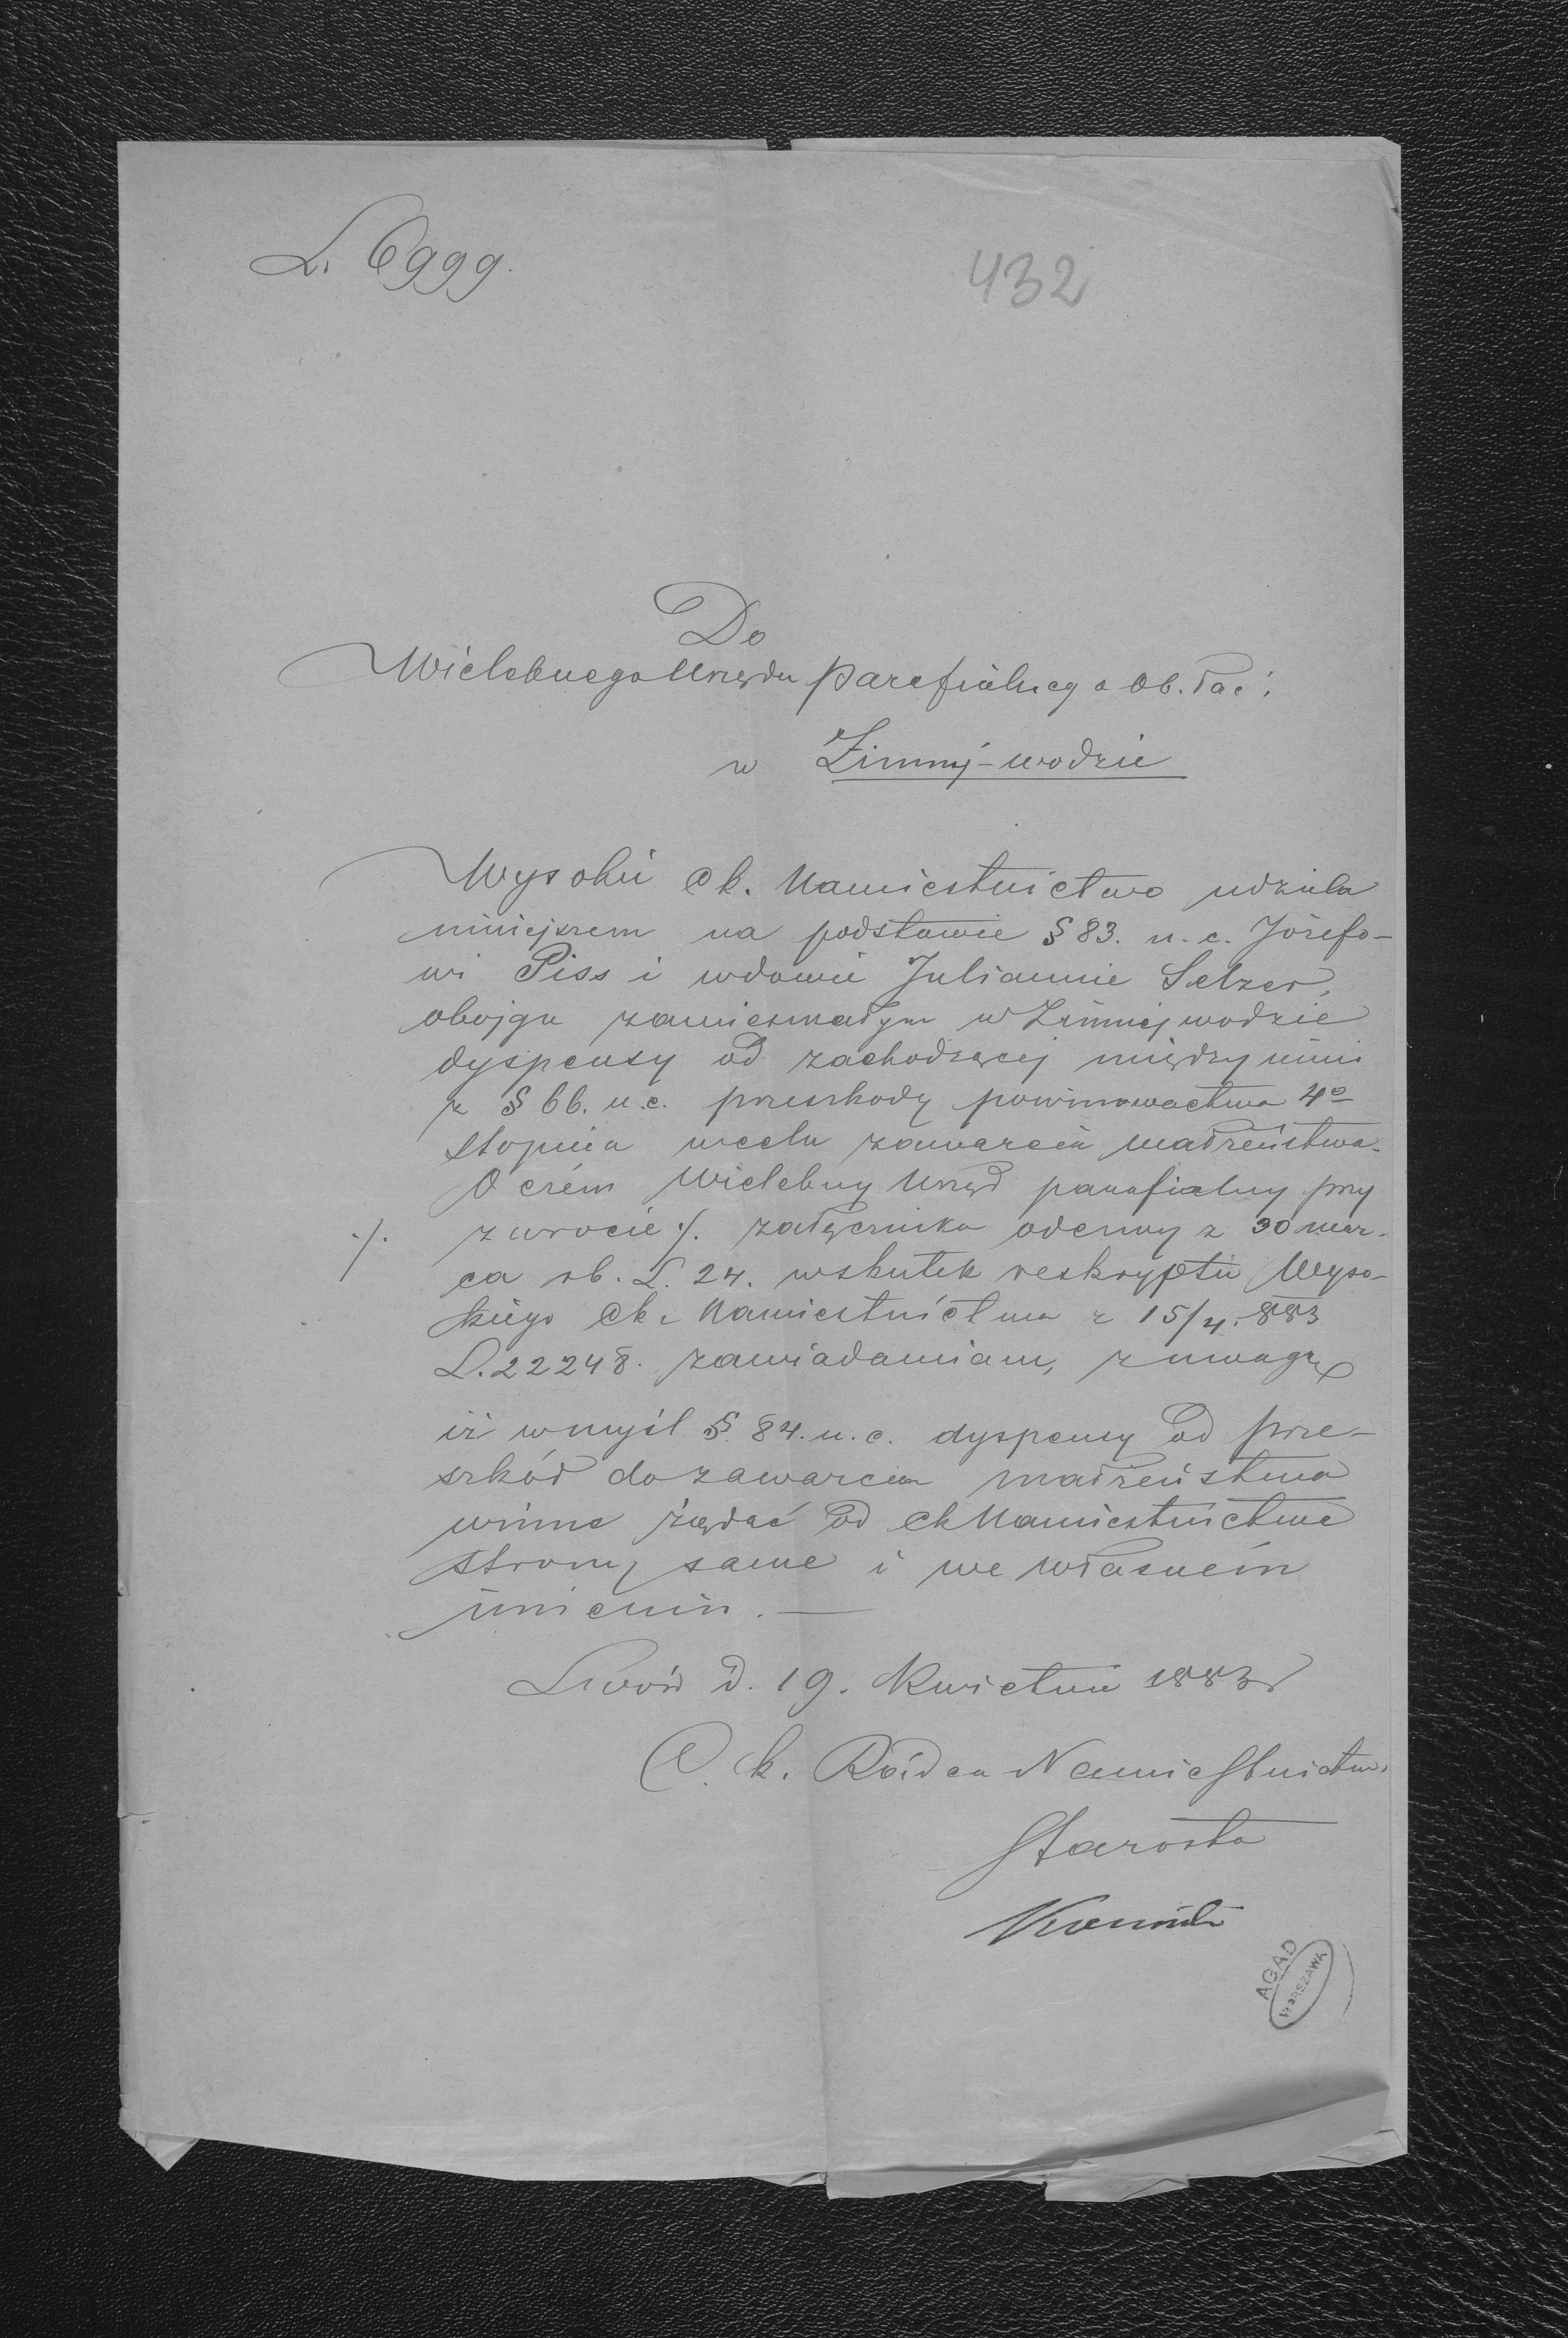 L. 6999.
432
Do
Wielebnego Urzędu parafialnego ob. łać.
w Zimnej-wodzie
Wysokie Ck. Namiestnictwo udziela
niniejszem na podstawie § 83. u. c. Józefo-
wi Piss i wdowie Juliannie Selzer,
obojgu zamieszkałym w Zimnej wodzie
dyspensy od zachodzącej między nimi
z § 66. u. c. przeszkody powinowactwa 4o
stopnia w celu zawarcia małżeństwa.
O czém Wielebny Urząd parafialny przy
./. zwrocie ./. załącznika odezwy z 30 mar-
ca rb. L. 24. wskutek reskryptu Wyso-
kiego Ck. Namiestnictwa z 15/4. 883
L. 22248. zawiadamiam, z uwagą
iż w myśl § 84. u. c. dyspensy od prze-
szkód do zawarcia małżeństwa
winne żądać od ck Namiestnictwa
strony same i we własném
imieniu. —
Lwów d. 19. Kwietnia 1883
C. k. Radca Namiestnictwa
Starosta
AGAD
WARSZAWA